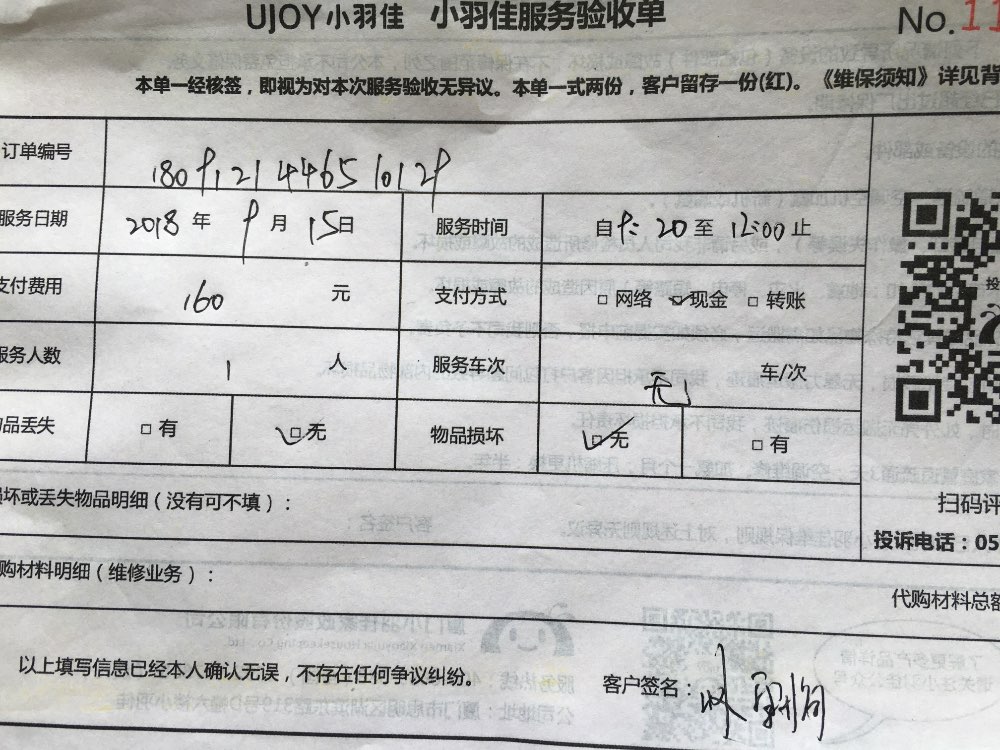 UJOY小羽佳 小羽佳服务验收单 No. 11
本单一经核签，即视为对本次服务验收无异议。本单一式两份，客户留存一份(红)。《维保须知》详见背
订单编号 1809121446510129
服务日期 2018 年 9 月 15日 服务时间 自 9:20 至 12:00 止
支付费用 160 元 支付方式 □ 网络 ☑ 现金 □ 转账
服务人数 1 人 服务车次 无 车/次
品丢失 □ 有 ☑ 无 物品损坏 ☑ 无 □ 有
损坏或丢失物品明细（没有可不填）：
扫码评
投诉电话：05
购材料明细（维修业务）：
代购材料总额
以上填写信息已经本人确认无误，不存在任何争议纠纷。
客户签名：